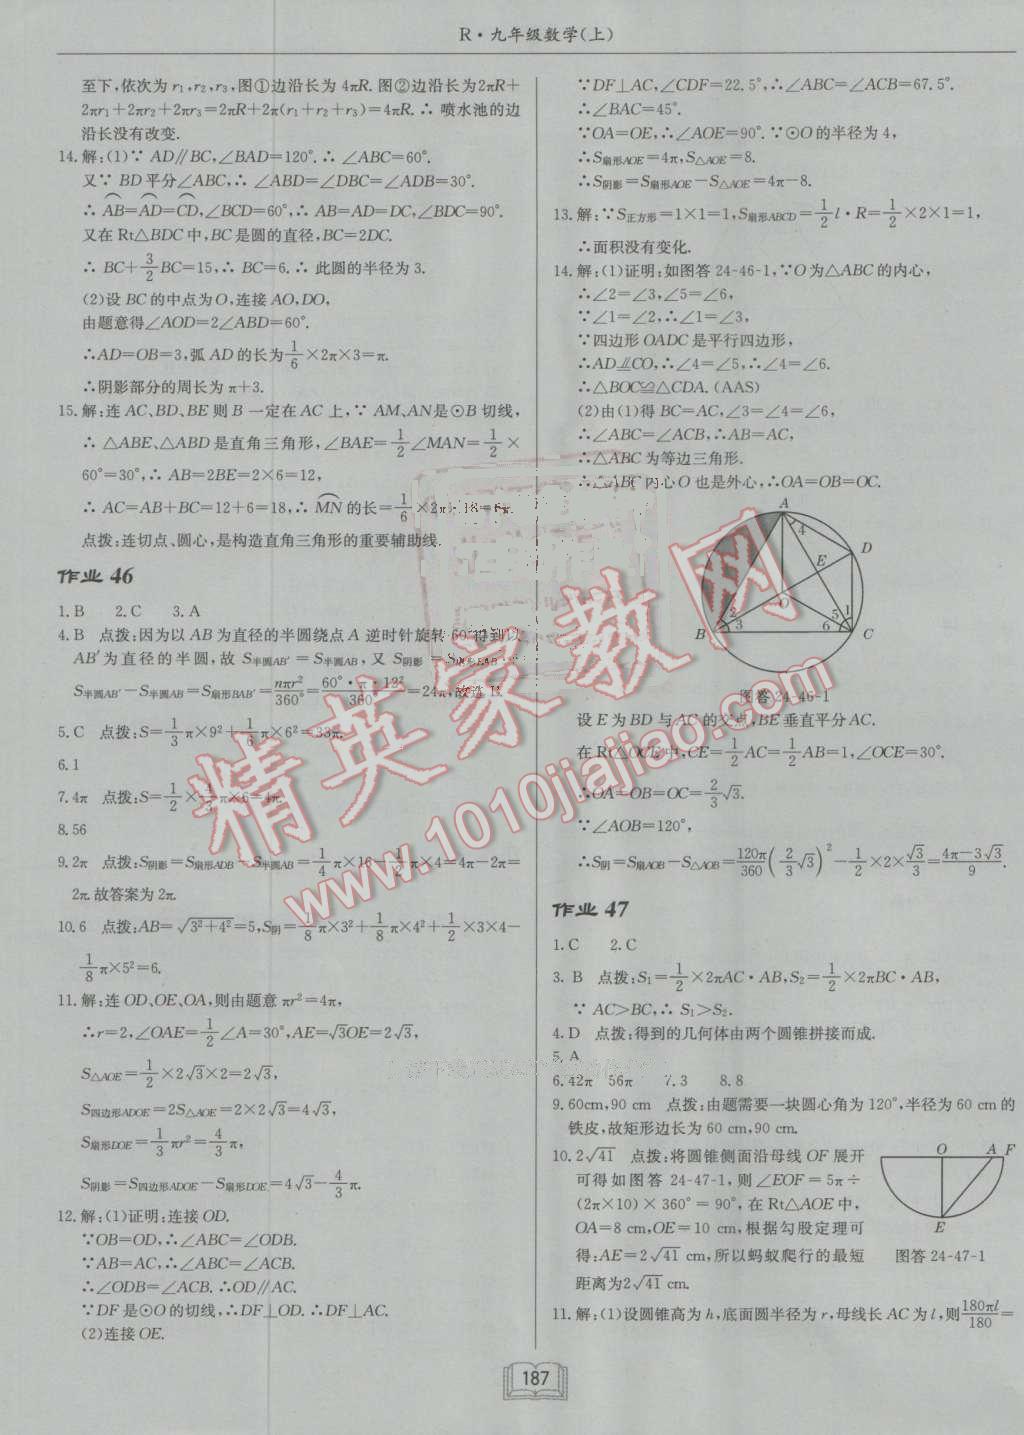 R·九年级数学(上)
至下,依次为r₁,r₂,r₃,图①边沿长为4πR.图②边沿长为2πR+
2πr₁+2πr₂+2πr₃=2πR+2π(r₁+r₂+r₃)=4πR.∴喷水池的边
沿长没有改变.
14.解:(1)∵AD∥BC,∠BAD=120°.∴∠ABC=60°.
又∵BD平分∠ABC,∴∠ABD=∠DBC=∠ADB=30°.
∴⌒AB=⌒AD=⌒CD,∠BCD=60°,∴AB=AD=DC,∠BDC=90°.
又在Rt△BDC中,BC是圆的直径,BC=2DC.
∴BC+3/2BC=15,∴BC=6.∴此圆的半径为3.
(2)设BC的中点为O,连接AO,DO,
由题意得∠AOD=2∠ABD=60°.
∴AD=OB=3,弧AD的长为1/6×2π×3=π.
∴阴影部分的周长为π+3.
15.解:连AC、BD、BE则B一定在AC上,∵AM、AN是⊙B切线,
∴△ABE、△ABD是直角三角形,∠BAE=1/2∠MAN=1/2×
60°=30°,∴AB=2BE=2×6=12,
∴AC=AB+BC=12+6=18,∴⌒MN的长=1/6×2π×18=6π.
点拨:连切点、圆心,是构造直角三角形的重要辅助线.
作业46
1.B 2.C 3.A
4.B 点拨:因为以AB为直径的半圆绕点A逆时针旋转60°得到以
AB′为直径的半圆,故S半圆AB′=S半圆AB,又S阴影=S扇形BAB′
S半圆AB′−S半圆AB=S扇形BAB′=nπr²/360°=60°·π·12²/360°=24π,故选B.
5.C 点拨:S=1/3π×9²+1/6π×6²=33π.
6.1
7.4π 点拨:S=1/2×4/3π×6=4π.
8.56
9.2π 点拨:S阴影=S扇形ADB−S半圆AB=1/4π×16−1/2π×4=4π−2π=
2π.故答案为2π.
10.6 点拨:AB=√(3²+4²)=5,S阴=1/8π×3²+1/8π×4²+1/2×3×4−
1/8π×5²=6.
11.解:连OD、OE、OA,则由题意πr²=4π,
∴r=2,∠OAE=1/2∠A=30°,AE=√3OE=2√3,
S△AOE=1/2×2√3×2=2√3,
S四边形ADOE=2S△AOE=2×2√3=4√3,
S扇形DOE=1/3πr²=4/3π,
S阴影=S四边形ADOE−S扇形DOE=4√3−4/3π.
12.解:(1)证明:连接OD.
∵OB=OD,∴∠ABC=∠ODB.
∵AB=AC,∴∠ABC=∠ACB.
∴∠ODB=∠ACB.∴OD∥AC.
∵DF是⊙O的切线,∴DF⊥OD.∴DF⊥AC.
(2)连接OE.
∵DF⊥AC,∠CDF=22.5°,∴∠ABC=∠ACB=67.5°.
∴∠BAC=45°.
∵OA=OE,∴∠AOE=90°.∵⊙O的半径为4,
∴S扇形AOE=4π,S△AOE=8.
∴S阴影=S扇形AOE−S△AOE=4π−8.
13.解:∵S正方形=1×1=1,S扇形ABCD=1/2l·R=1/2×2×1=1,
∴面积没有变化.
14.解:(1)证明:如图答24-46-1,∵O为△ABC的内心,
∴∠2=∠3,∠5=∠6,
∵∠1=∠2,∴∠1=∠3,
∵四边形OADC是平行四边形,
∴AD∥=CO,∴∠4=∠5,∴∠4=∠6.
∴△BOC≌△CDA.(AAS)
(2)由(1)得BC=AC,∠3=∠4=∠6,
∴∠ABC=∠ACB,∴AB=AC,
∴△ABC为等边三角形.
∴△ABC内心O也是外心,∴OA=OB=OC.
A
4
D
E
O
2
3
5
1
6
B
C
图答24-46-1
设E为BD与AC的交点,BE垂直平分AC.
在Rt△OCE中,CE=1/2AC=1/2AB=1,∠OCE=30°.
∴OA=OB=OC=2/3√3.
∵∠AOB=120°,
∴S阴=S扇AOB−S△AOB=120π/360(2/3√3)²−1/2×2×√3/3=(4π−3√3)/9.
作业47
1.C 2.C
3.B 点拨:S₁=1/2×2πAC·AB,S₂=1/2×2πBC·AB,
∵AC>BC,∴S₁>S₂.
4.D 点拨:得到的几何体由两个圆锥拼接而成.
5.A
6.42π 56π 7.3 8.8
9.60cm,90 cm 点拨:由题需要一块圆心角为120°,半径为60 cm的
铁皮,故矩形边长为60 cm,90 cm.
10.2√41 点拨:将圆锥侧面沿母线OF展开
可得如图答24-47-1,则∠EOF=5π÷
(2π×10)×360°=90°,在Rt△AOE中,
OA=8 cm,OE=10 cm,根据勾股定理可
得:AE=2√41 cm,所以蚂蚁爬行的最短
距离为2√41 cm.
O A F
E
图答24-47-1
11.解:(1)设圆锥高为h,底面圆半径为r,母线长AC为l,则180πl/180=
187
精英家教网
www.1010jiajiao.com